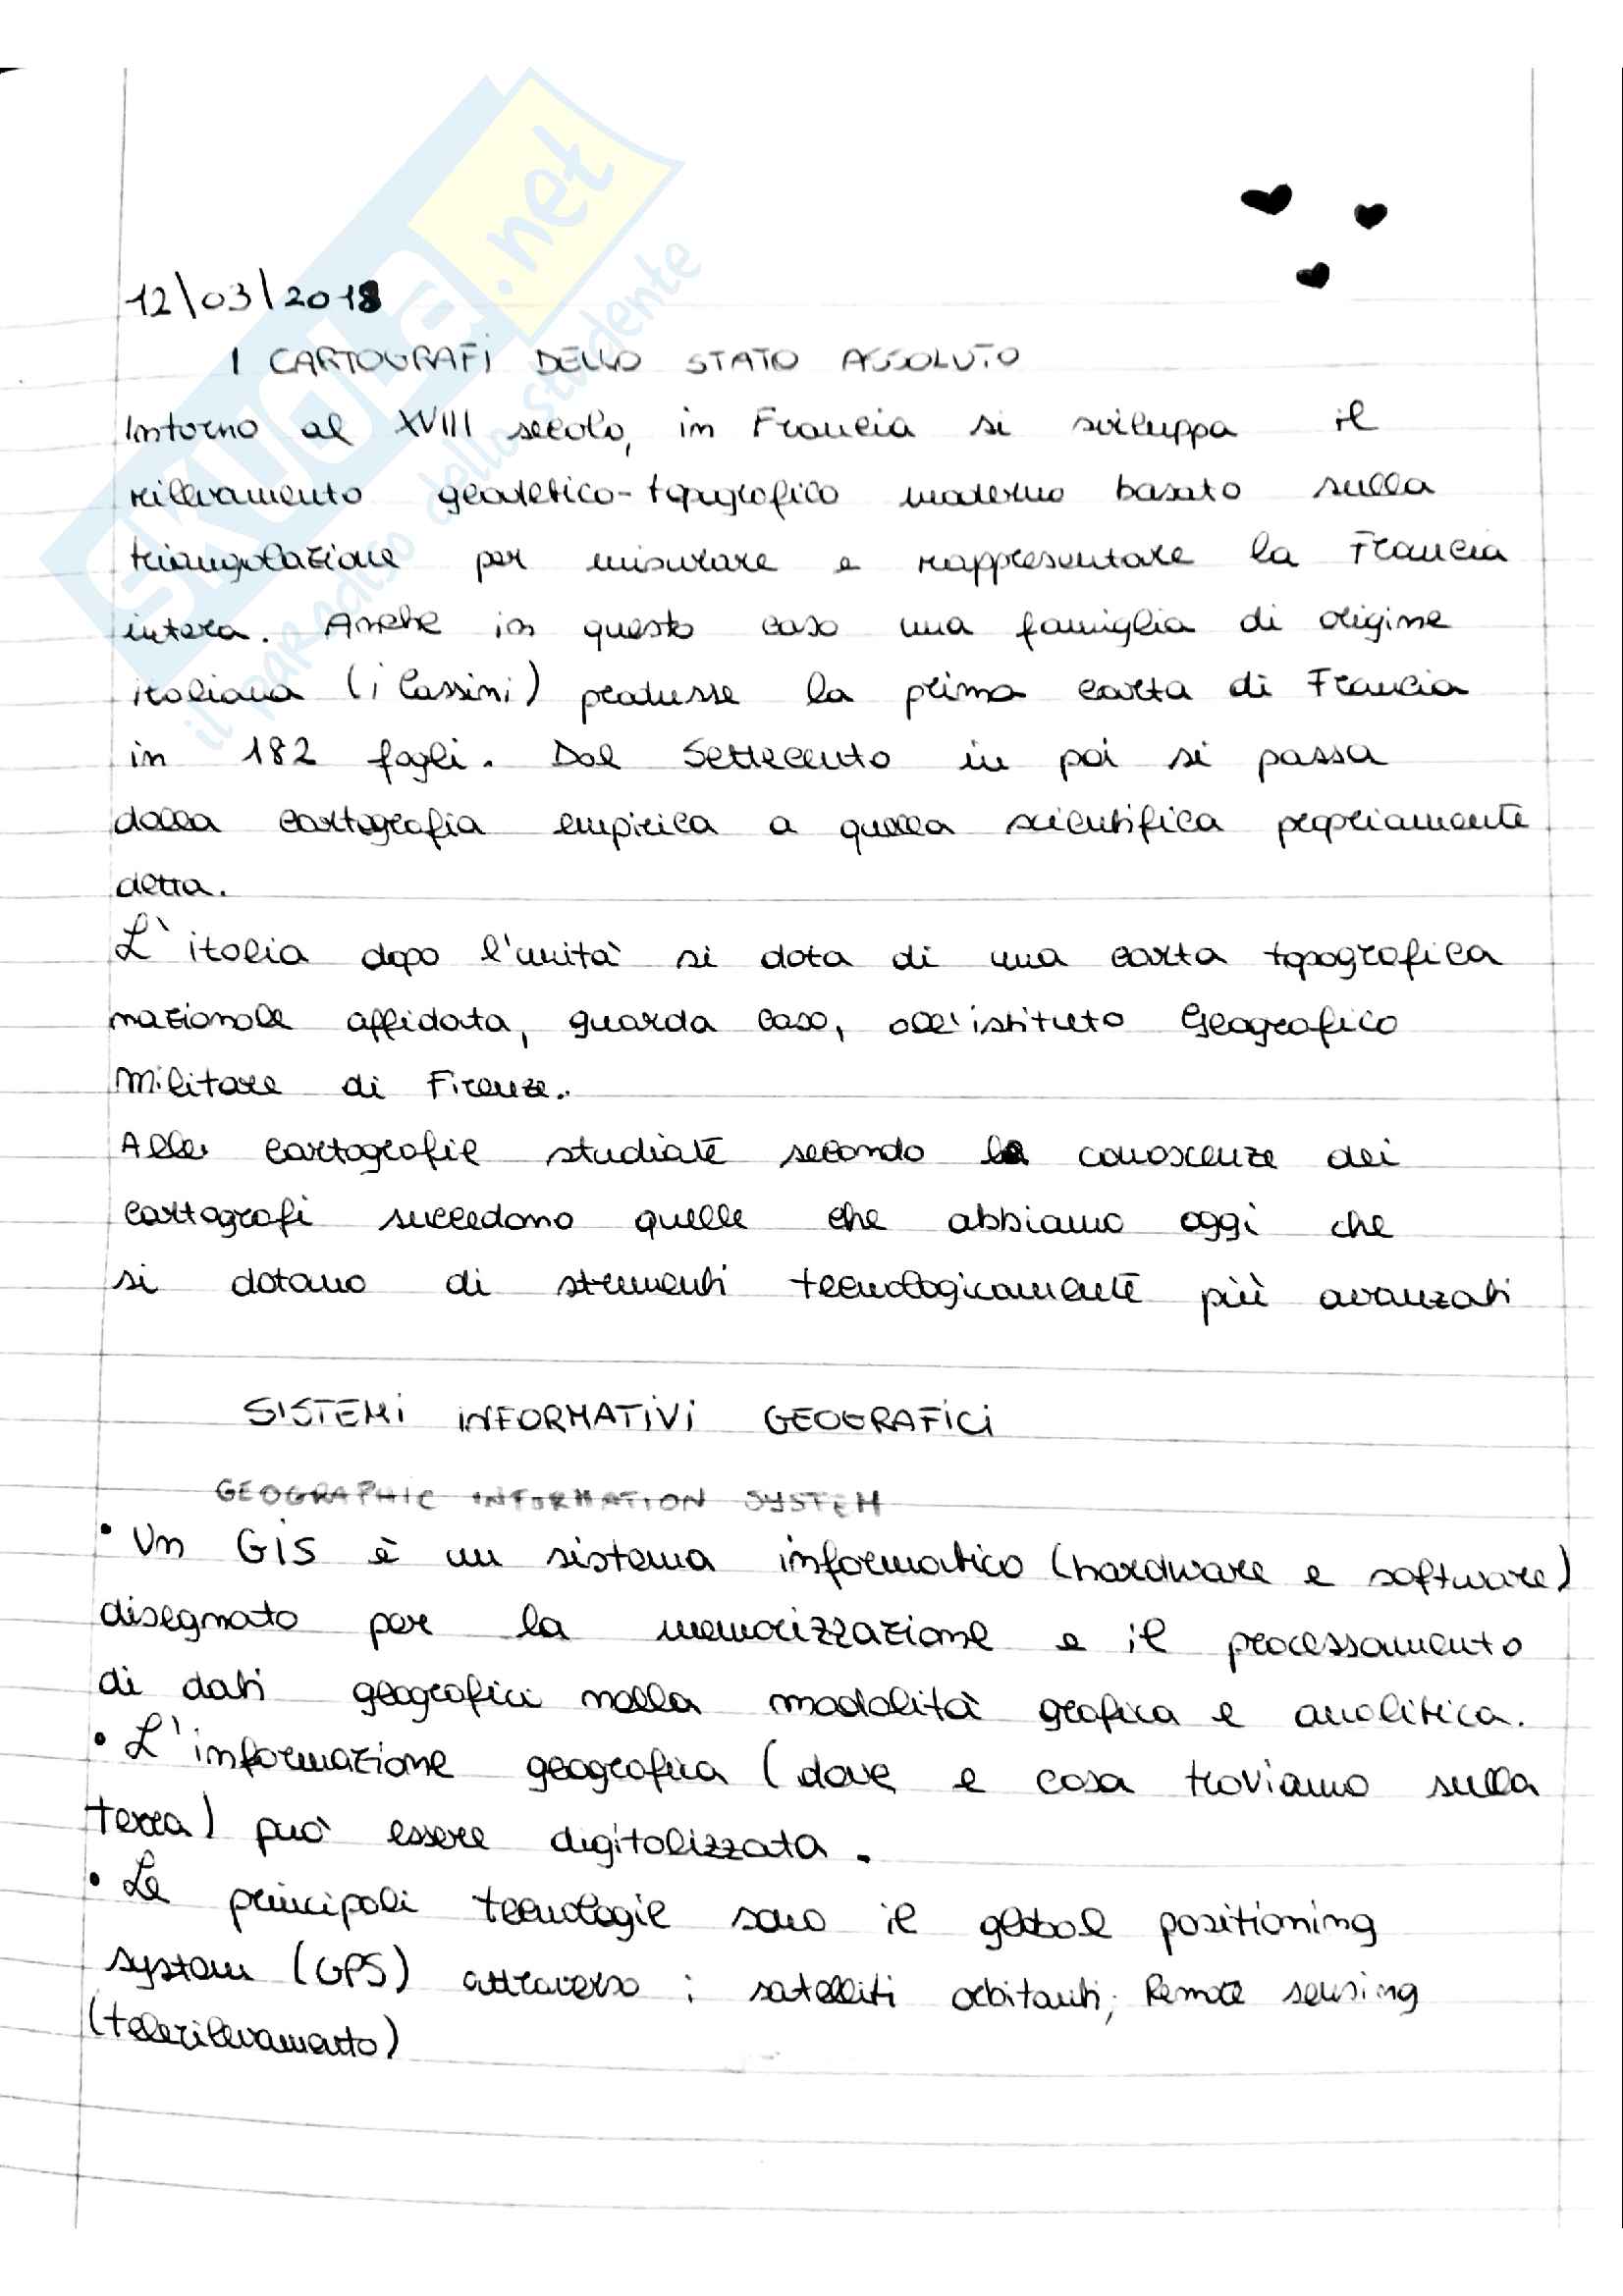 SKUOLA.net
il paradiso dello studente
12\03\2018
I CARTOGRAFI DELLO STATO ASSOLUTO
Intorno al XVIII secolo, in Francia si sviluppa il
rilevamento geodetico-topografico moderno basato sulla
triangolazione per misurare e rappresentare la Francia
intera. Anche in questo caso una famiglia di origine
italiana (i Cassini) produsse la prima carta di Francia
in 182 fogli. Dal Settecento in poi si passa
dalla cartografia empirica a quella scientifica propriamente
detta.
L'italia dopo l'unità si dota di una carta topografica
nazionale affidata, guarda caso, all'istituto Geografico
Militare di Firenze.
Alle cartografie studiate secondo le conoscenze dei
cartografi succedono quelle che abbiamo oggi che
si dotano di strumenti tecnologicamente più avanzati
SISTEMI INFORMATIVI GEOGRAFICI
GEOGRAPHIC INFORMATION SYSTEM
• Un GIS è un sistema informatico (hardware e software)
disegnato per la memorizzazione e il processamento
di dati geografici nella modalità grafica e analitica.
• L'informazione geografica (dove e cosa troviamo sulla
terra) può essere digitalizzata.
• Le principali tecnologie sono il global positioning
system (GPS) attraverso i satelliti orbitanti; Remote sensing
(telerilevamento)